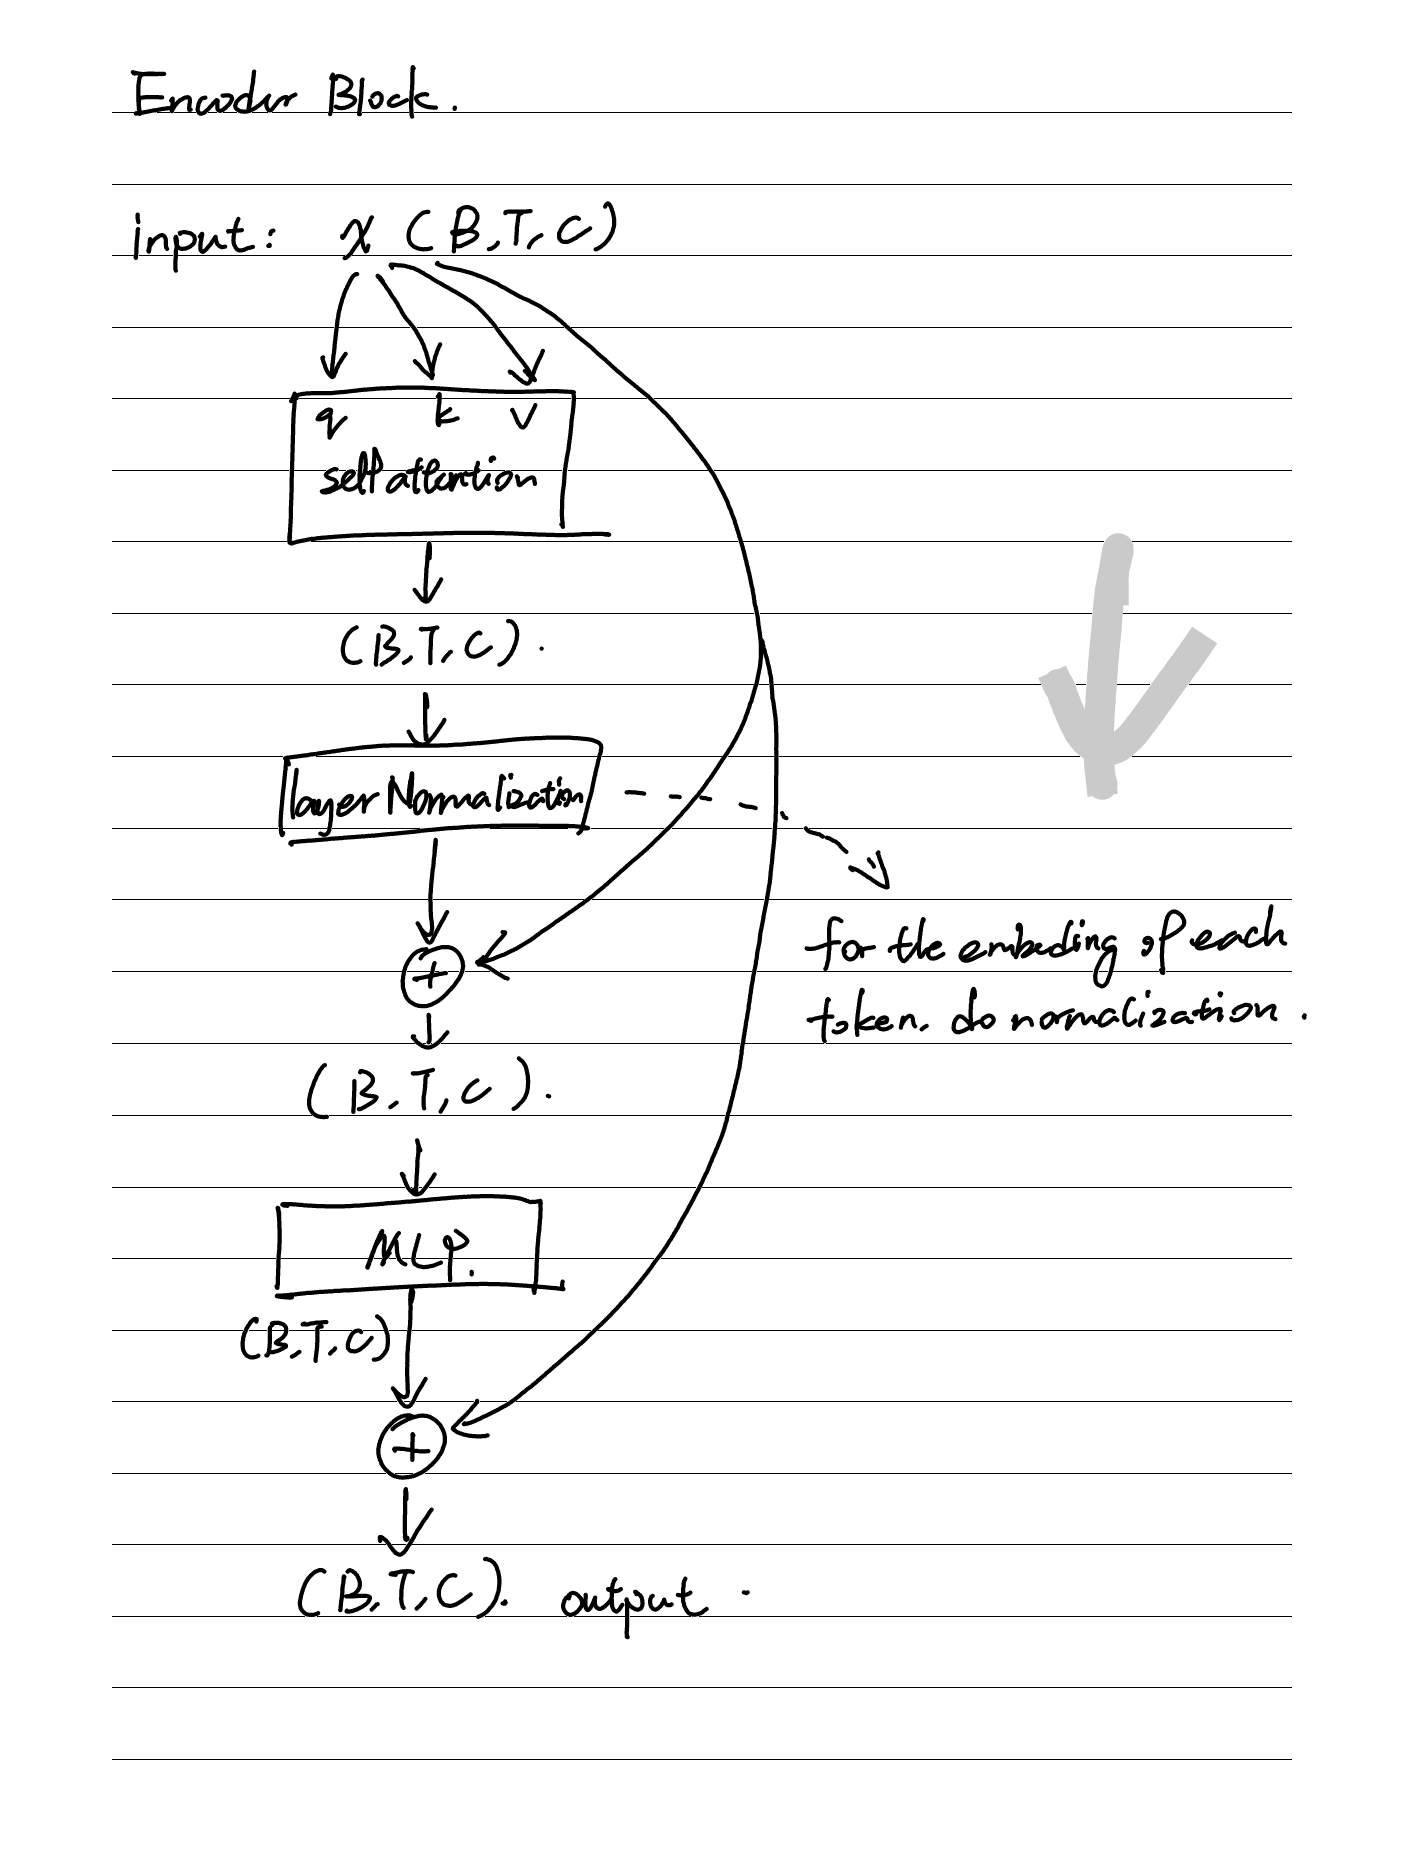 Encoder Block.
input: x (B,T,C)
q k v
self attention
(B,T,C).
layer Normalization
+
for the embeding of each
token. do normalization.
(B,T,C).
MLP.
(B,T,C)
+
(B,T,C). output.